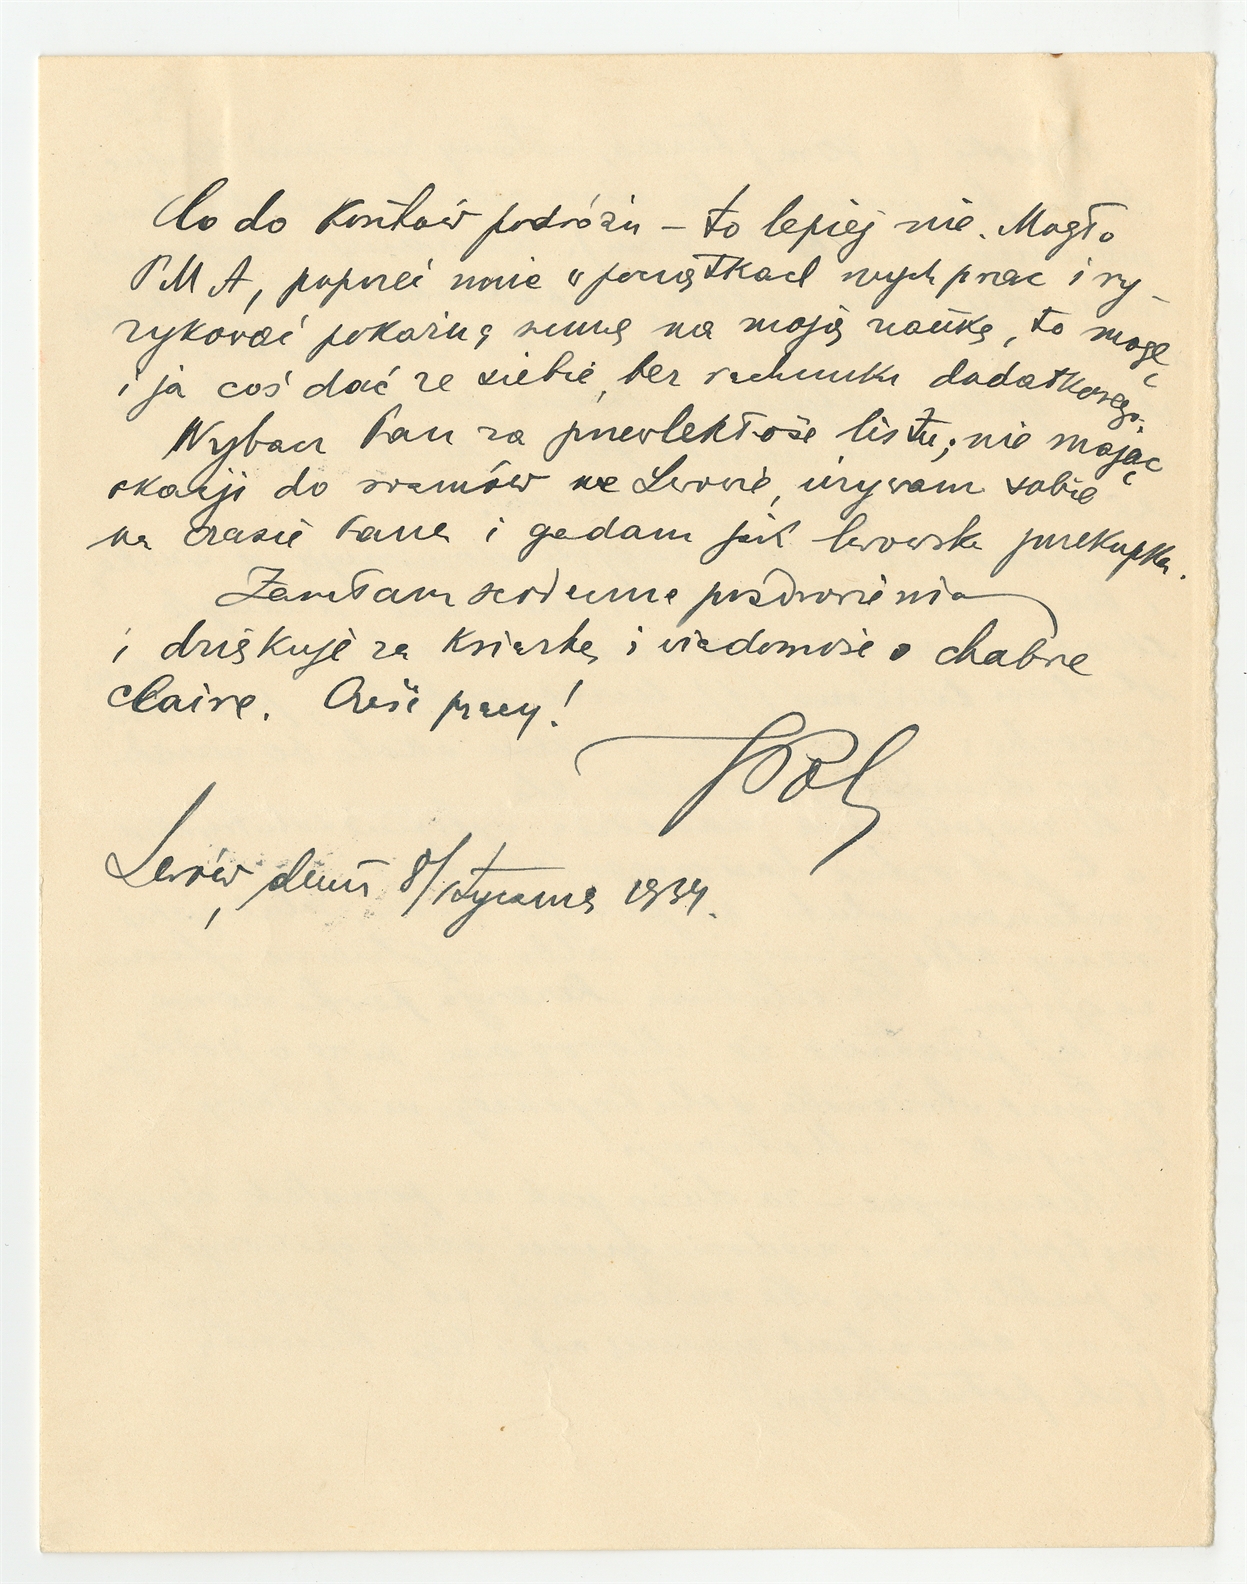 Co do kosztów podróży – to lepiej nie. Mogło
P.M.A, poprzeć mnie w początkach mych prac i ry-
zykować pokaźną sumę na moją naukę, to mogę
i ja coś dać ze siebie, bez rachunku dodatkowego.
Wybacz Pan za przewlekłość listu; nie mając
okazji do rozmów we Lwowie, używam sobie
na czasie Pana i gadam jak lwowska przekupka.
Zasyłam serdeczne pozdrowienia
i dziękuję za książkę i wiadomość o chabre
Claire. Cześć pracy!
Lwów, dnia 8/stycznia 1934.